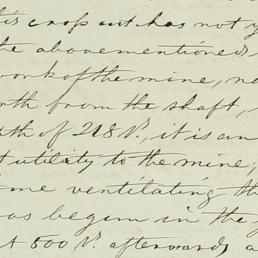 crop out has not y
the abovementioned
work of the mine, ne
rth from the shaft,
th of 218 V., it is an
t utility to the mine;
me ventilating th
as begun in the y
At 500 V. afterwards a